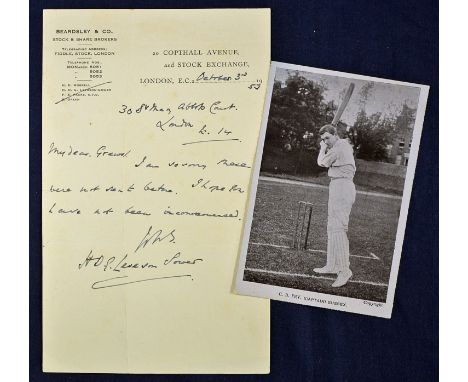 BEARDSLEY & CO.
STOCK & SHARE BROKERS
TELEGRAPHIC ADDRESS:
FIDDLE, STOCK, LONDON
TELEPHONE NOS.
MONARCH 5051
" 5052
" 5053
20 COPTHALL AVENUE,
and STOCK EXCHANGE,
LONDON, E.C.2 October 3rd 19
53
30 St Mary Abbots Court
London W. 14
My dear
I am so sorry these
were not sent before. I hope you
have not been inconvenienced.
H D G Leveson Gower
C. B. FRY, (CAPTAIN) SUSSEX.